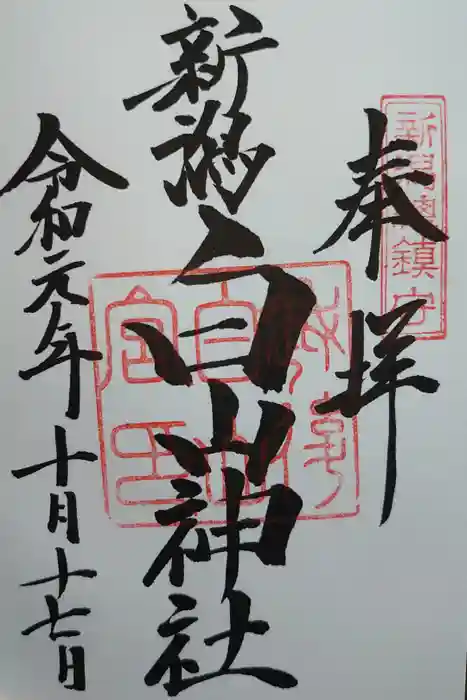 奉拝
新潟總鎮守
新潟白山神社
令和元年十月十七日